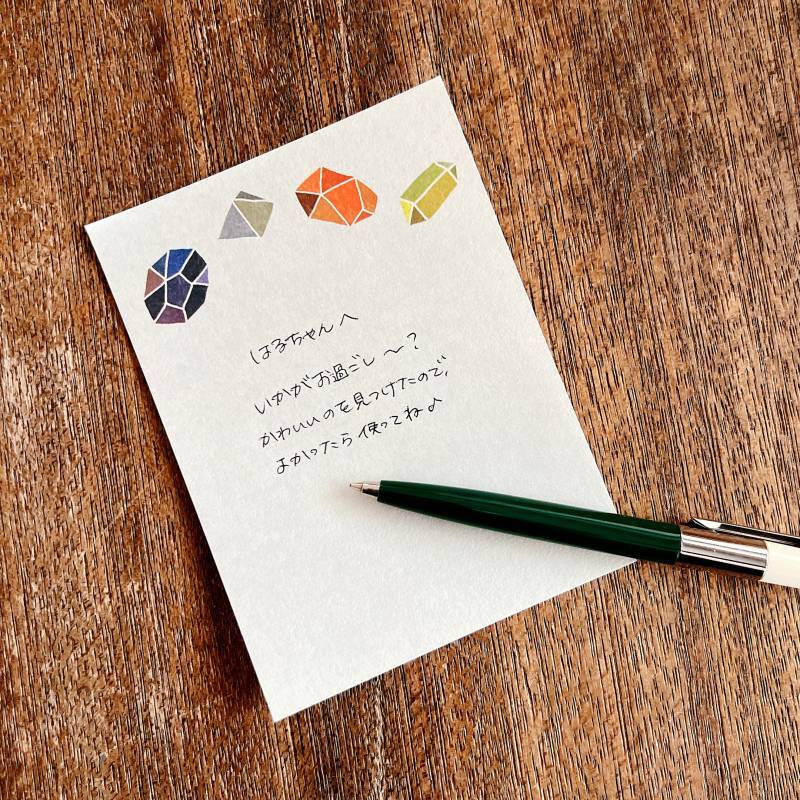 はるちゃんへ
いかがお過ごし〜?
かわいいのを見つけたので、
よかったら使ってね♪